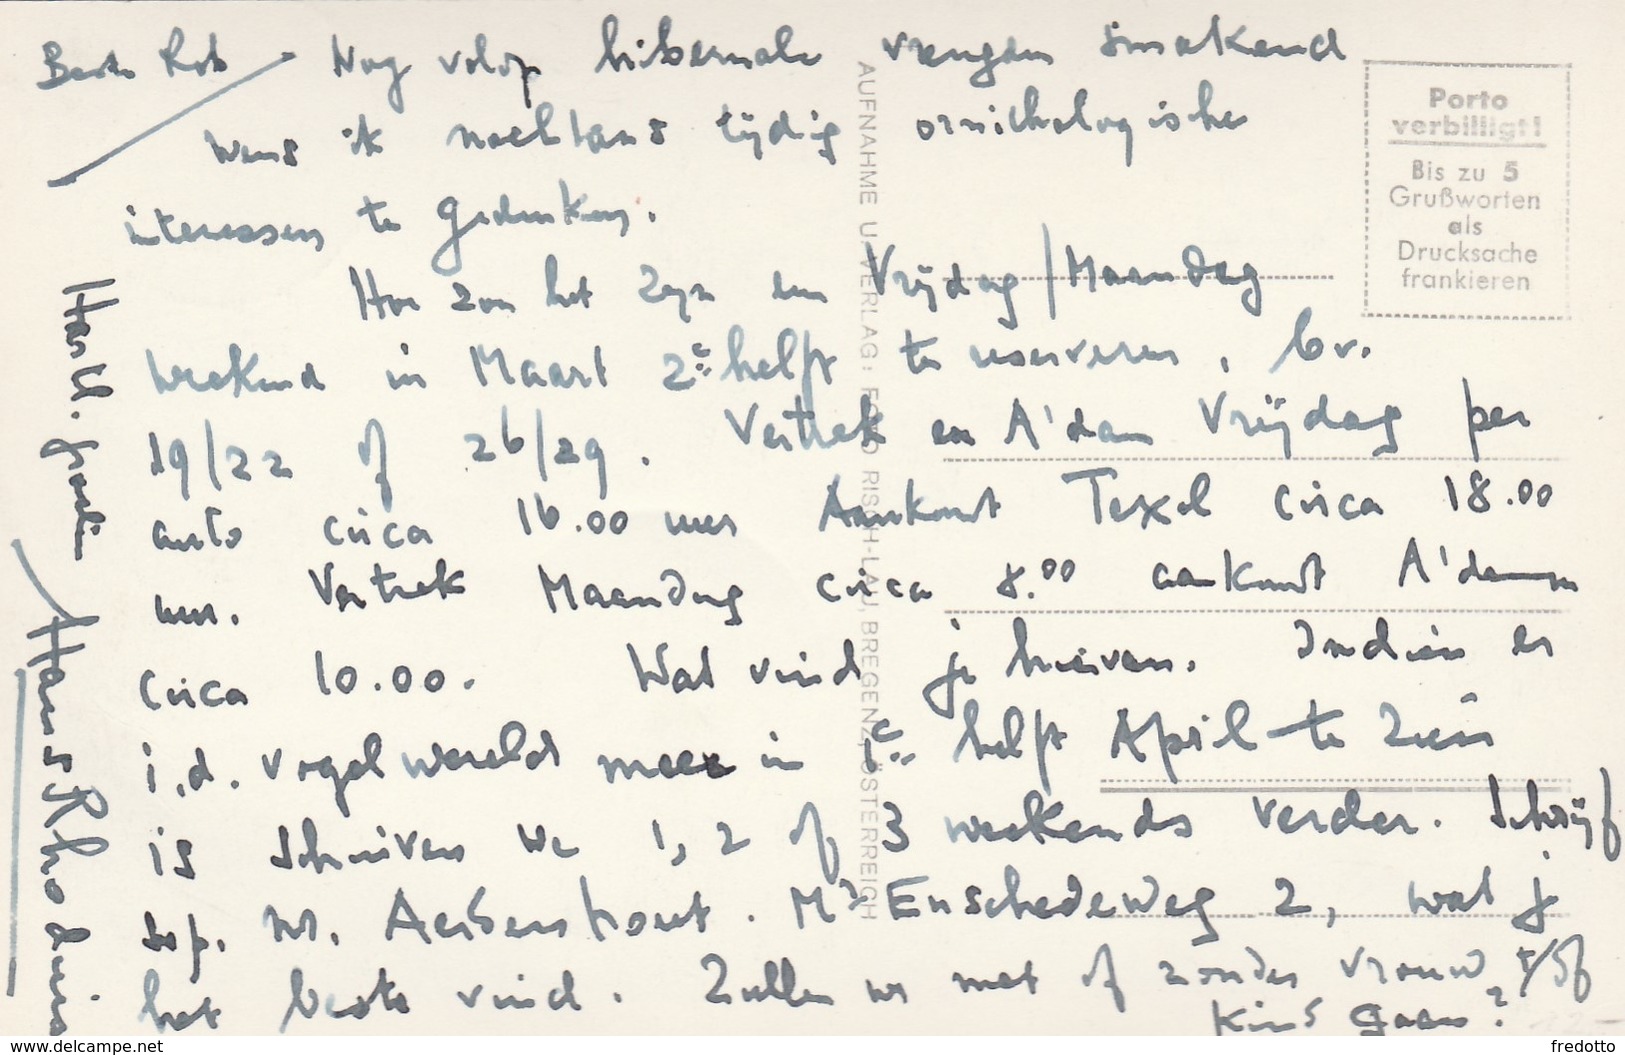 Beste Rob Nog volop hibernale vreugden smakend
wens ik nochtans tijdig ornithologische
interessen te gedenken.
Hoe zou het zijn een Vrijdag/Maandag
weekend in Maart 2e helft te reserveren, bv.
19/22 of 26/29. Vertrek en A'dam Vrijdag per
auto circa 16.00 uur Aankomst Texel circa 18.00
uur. Vertrek Maandag circa 8.00 aankomst A'dam
circa 10.00. Wat vind je hiervan. Indien er
i.d. vogelwereld meer in 1e helft April te zien
is schuiven we 1, 2 of 3 weekends verder. Schrijf
s.v.p. nr. Aerdenhout. Mr Enschedeweg 2, wat je
het beste vind. Zullen we met of zonder vrouw &/of
kind gaan?
Hartl. groeten
Hans Rhodius
Porto
verbilligt!
Bis zu 5
Grußworten
als
Drucksache
frankieren
AUFNAHME U. VERLAG: FOTO RISCH-LAU, BREGENZ, ÖSTERREICH
https://www.delcampe.net
fredotto